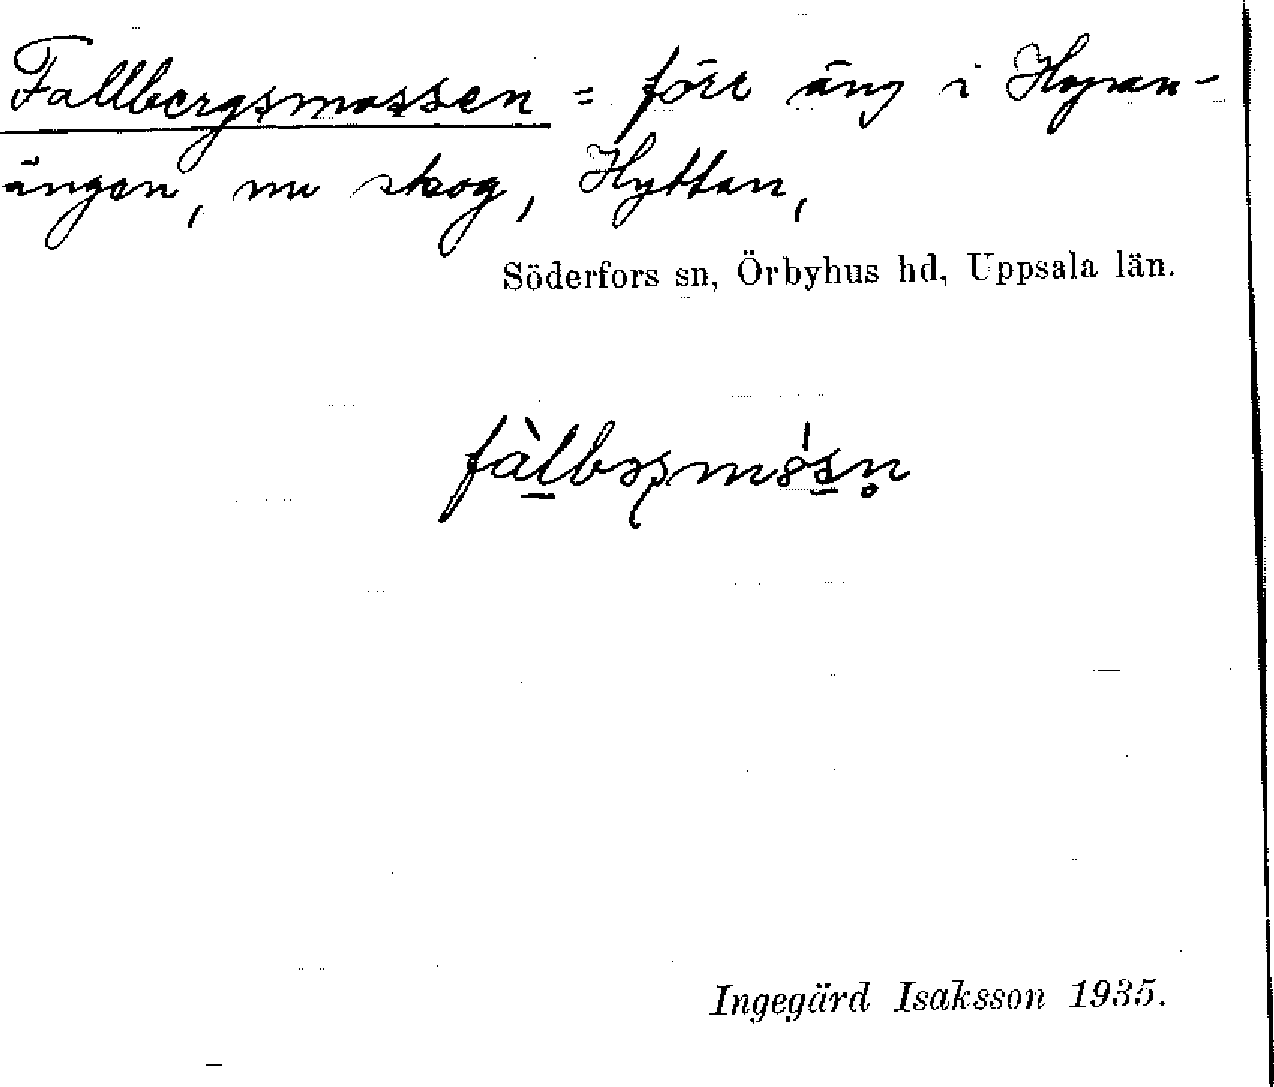 Fallbergsmossen = förr äng i Hopan-
ängen, nu skog, Hyttan,
Söderfors sn, Örbyhus hd, Uppsala län.
Ingegärd Isaksson 1935.